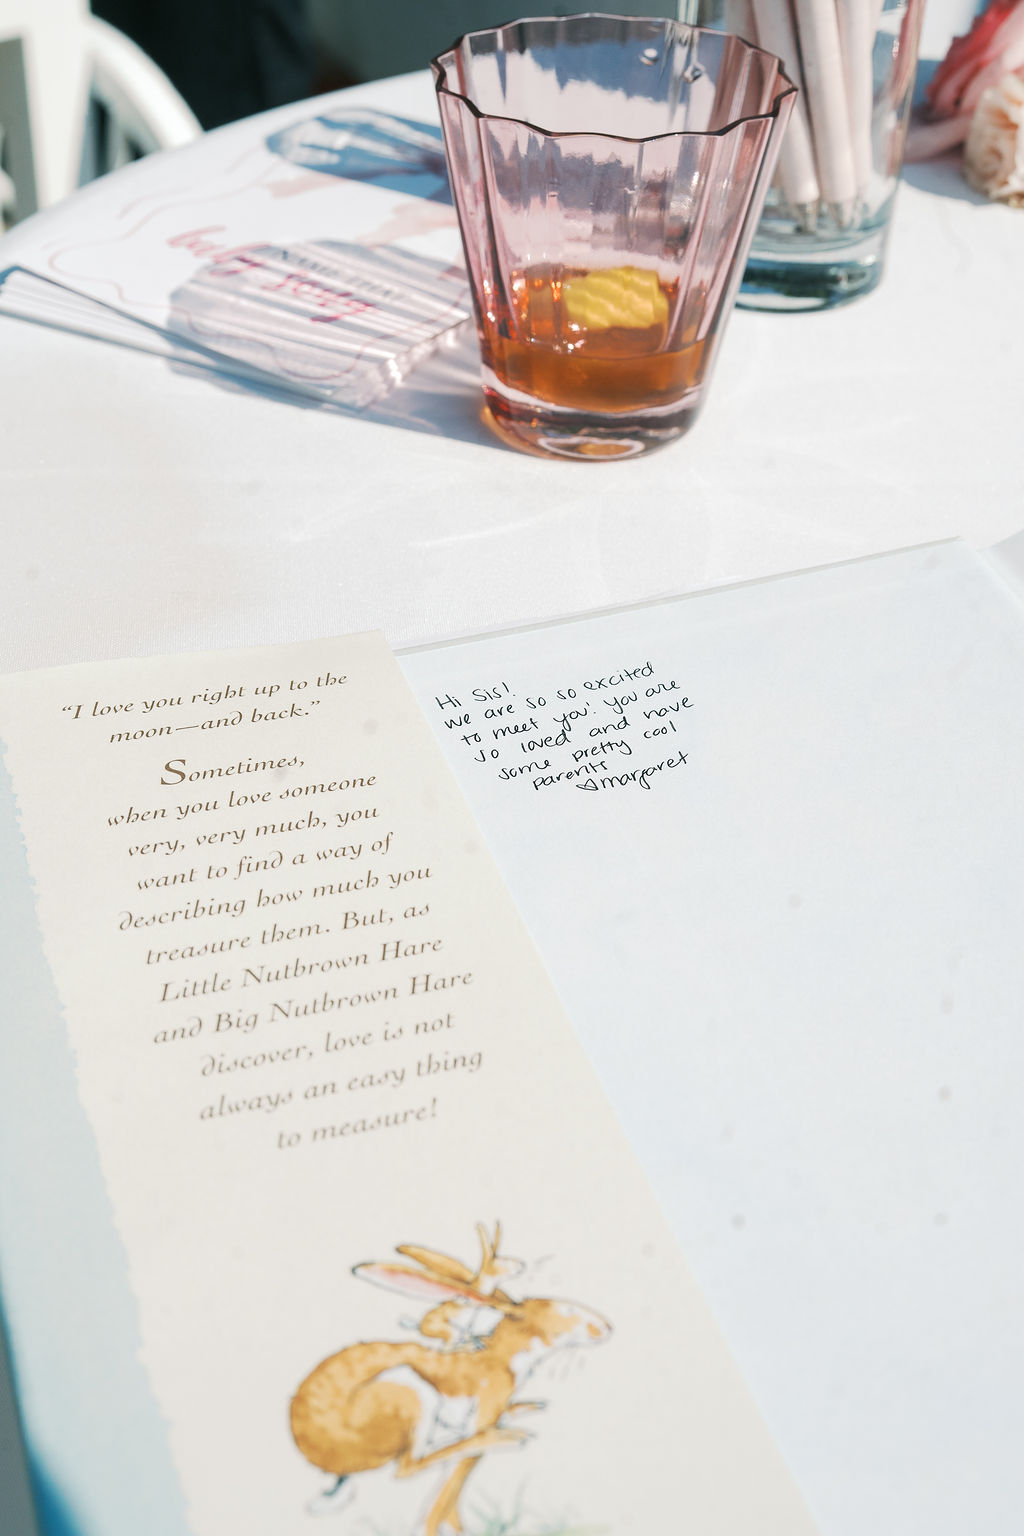 baby
“I love you right up to the
moon—and back.”
Sometimes,
when you love someone
very, very much, you
want to find a way of
describing how much you
treasure them. But, as
Little Nutbrown Hare
and Big Nutbrown Hare
discover, love is not
always an easy thing
to measure!
Hi Sis!
we are so so excited
to meet you! you are
so loved and have
some pretty cool
parents
margaret